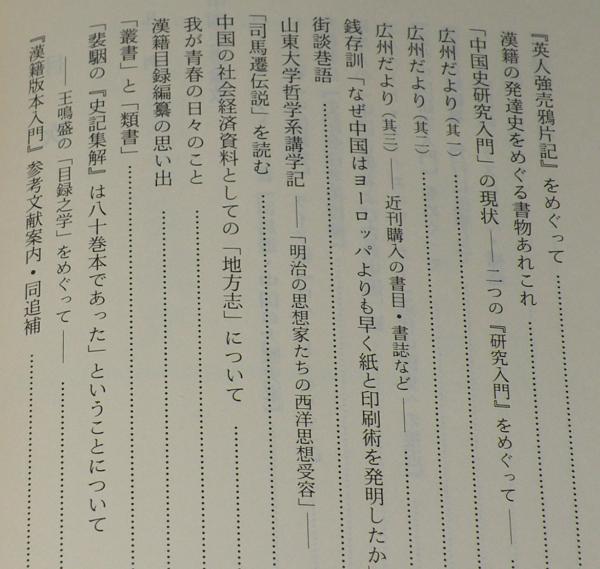 『英人強売鴉片記』をめぐって
漢籍の発達史をめぐる書物あれこれ
「中国史研究入門」の現状 ── 二つの『研究入門』をめぐって ──
広州だより（其一）
広州だより（其二）
広州だより（其三）── 近刊購入の書目・書誌など ──
銭存訓「なぜ中国はヨーロッパよりも早く紙と印刷術を発明したか」
街談巷語
山東大学哲学系講学記 ── 「明治の思想家たちの西洋思想受容」──
「司馬遷伝説」を読む
中国の社会経済資料としての「地方志」について
我が青春の日々のこと
漢籍目録編纂の思い出
「叢書」と「類書」
「裴駰の『史記集解』は八十巻本であった」ということについて
── 王鳴盛の「目録之学」をめぐって ──
『漢籍版本入門』参考文献案内・同追補